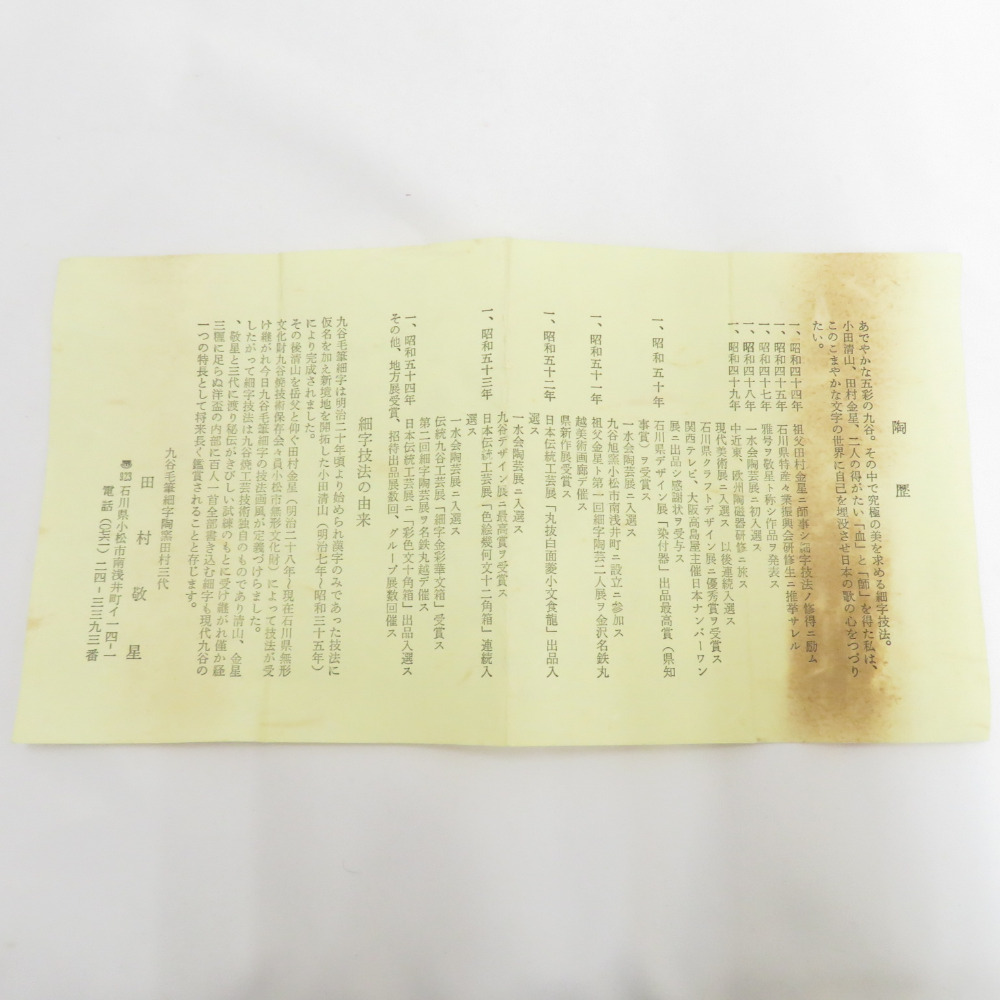 陶歴
あでやかな五彩の九谷。その中で究極の美を求める細字技法。
小田清山、田村金星、二人の得がたい「血」と「師」を得た私は、
このこまやかな文字の世界に自己を埋没させ日本の歌の心をつづり
たい。
一、昭和四十四年 祖父田村金星ニ師事シ細字技法ノ修得ニ励ム
一、昭和四十五年 石川県特産々業振興会研修生ニ推挙サレル
一、昭和四十七年 雅号ヲ敬星ト称シ作品ヲ発表ス
一、昭和四十八年 一水会陶芸展ニ初入選ス
一、昭和四十九年 中近東、欧州陶磁器研修ニ旅ス
現代美術展ニ入選ス 以後連続入選ス
石川県クラフトデザイン展ニ優秀賞ヲ受賞ス
関西テレビ、大阪高島屋主催日本ナンバーワン
展ニ出品シ感謝状ヲ受与ス
一、昭和五十年 石川県デザイン展「染付器」出品最高賞(県知
事賞)ヲ受賞ス
一水会陶芸展ニ入選ス
九谷旭窯小松市南浅井町ニ設立ニ参加ス
一、昭和五十一年 祖父金星ト第一回細字陶芸二人展ヲ金沢名鉄丸
越美術画廊デ催ス
県新作展受賞ス
一、昭和五十二年 日本伝統工芸展「丸抜白面菱小文食籠」出品入
選ス
一水会陶芸展ニ入選ス
九谷デザイン展ニ最高賞ヲ受賞ス
一、昭和五十三年 日本伝統工芸展「色絵幾何文十二角箱」連続入
選ス
一水会陶芸展ニ入選ス
伝統九谷工芸展「細字金彩華文箱」受賞ス
第二回細字陶芸展ヲ名鉄丸越デ催ス
一、昭和五十四年 日本伝統工芸展ニ「彩色文十角箱」出品入選ス
その他、地方展受賞、招待出品展数回、グループ展数回催ス
細字技法の由来
九谷毛筆細字は明治二十年頃より始められ漢字のみであった技法に
仮名を加え新境地を開拓した小田清山(明治七年~昭和三十五年)
により完成されました。
その後清山を岳父と仰ぐ田村金星(明治二十八年~現在石川県無形
文化財九谷焼技術保存会々員小松市無形文化財)によって技法が受
け継がれ今日九谷毛筆細字の技法画風が定義づけらました。
したがって細字技法は九谷焼工芸技術独自のものであり清山、金星
、敬星と三代に渡り秘伝がきびしい試練のもとに受け継がれ僅か経
三厘に足らぬ洋盃の内部に百人一首全部書き込む細字も現代九谷の
一つの特長として将来長く鑑賞されることと存じます。
九谷毛筆細字陶窯田村三代
田村敬星
石川県小松市南浅井町イ一四-一
電話(〇七六一)二四-三三九三番